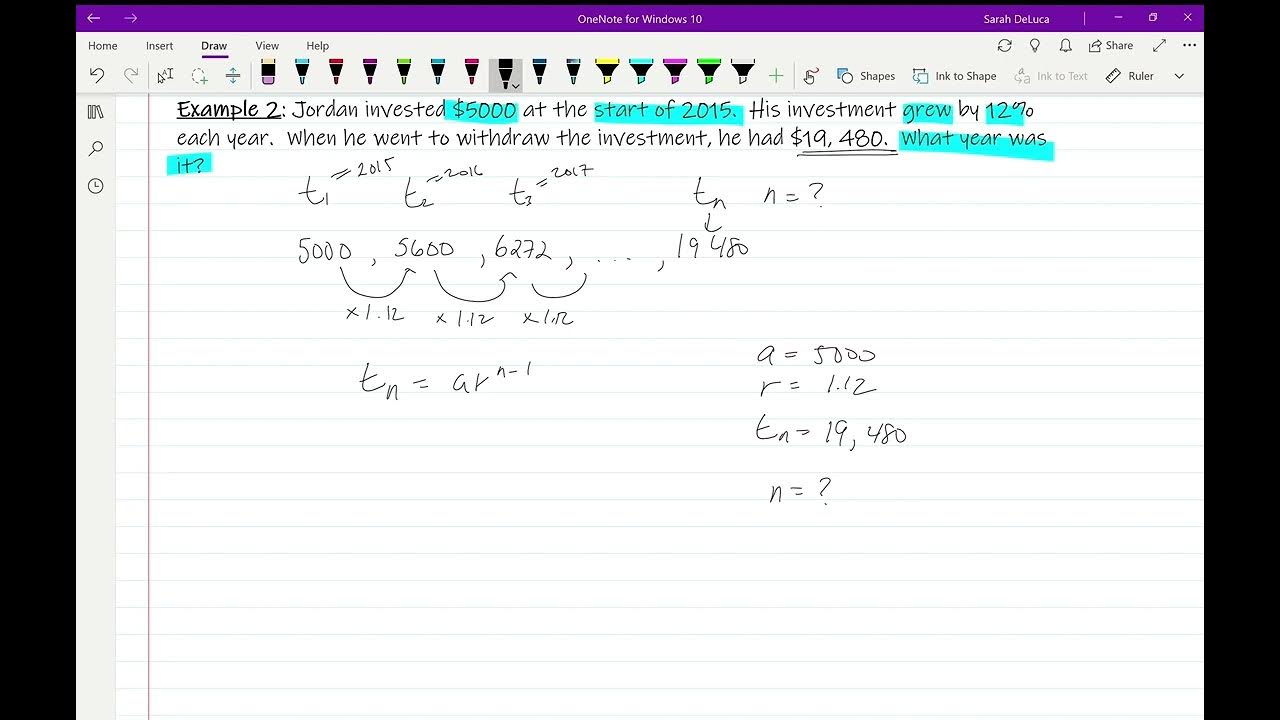 OneNote for Windows 10
Sarah DeLuca
Home Insert Draw View Help
Share
Shapes Ink to Shape Ink to Text Ruler
Example 2: Jordan invested $5000 at the start of 2015. His investment grew by 12%
each year. When he went to withdraw the investment, he had $19, 480. What year was
it?
t₁ = 2015 t₂ = 2016 t₃ = 2017 tₙ n = ?
5000 , 5600 , 6272 , .... , 19 480
×1.12 × 1.12 ×1.12
tₙ = arⁿ⁻¹
a = 5000
r = 1.12
tₙ = 19, 480
n = ?